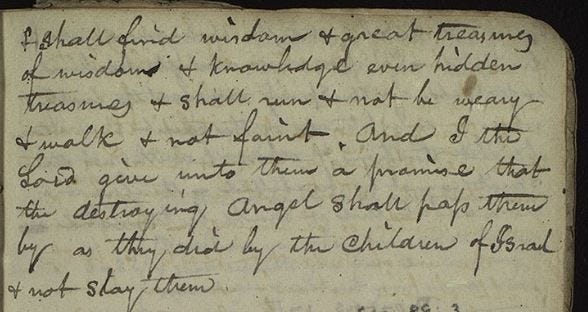 & shall find wisdom & great treasures
of wisdom & knowledge even hidden
treasures & shall run & not be weary
& walk & not faint. And I the
Lord give unto them a promise that
the destroying Angel shall pass them
by as they did by the Children of Israel
& not slay them